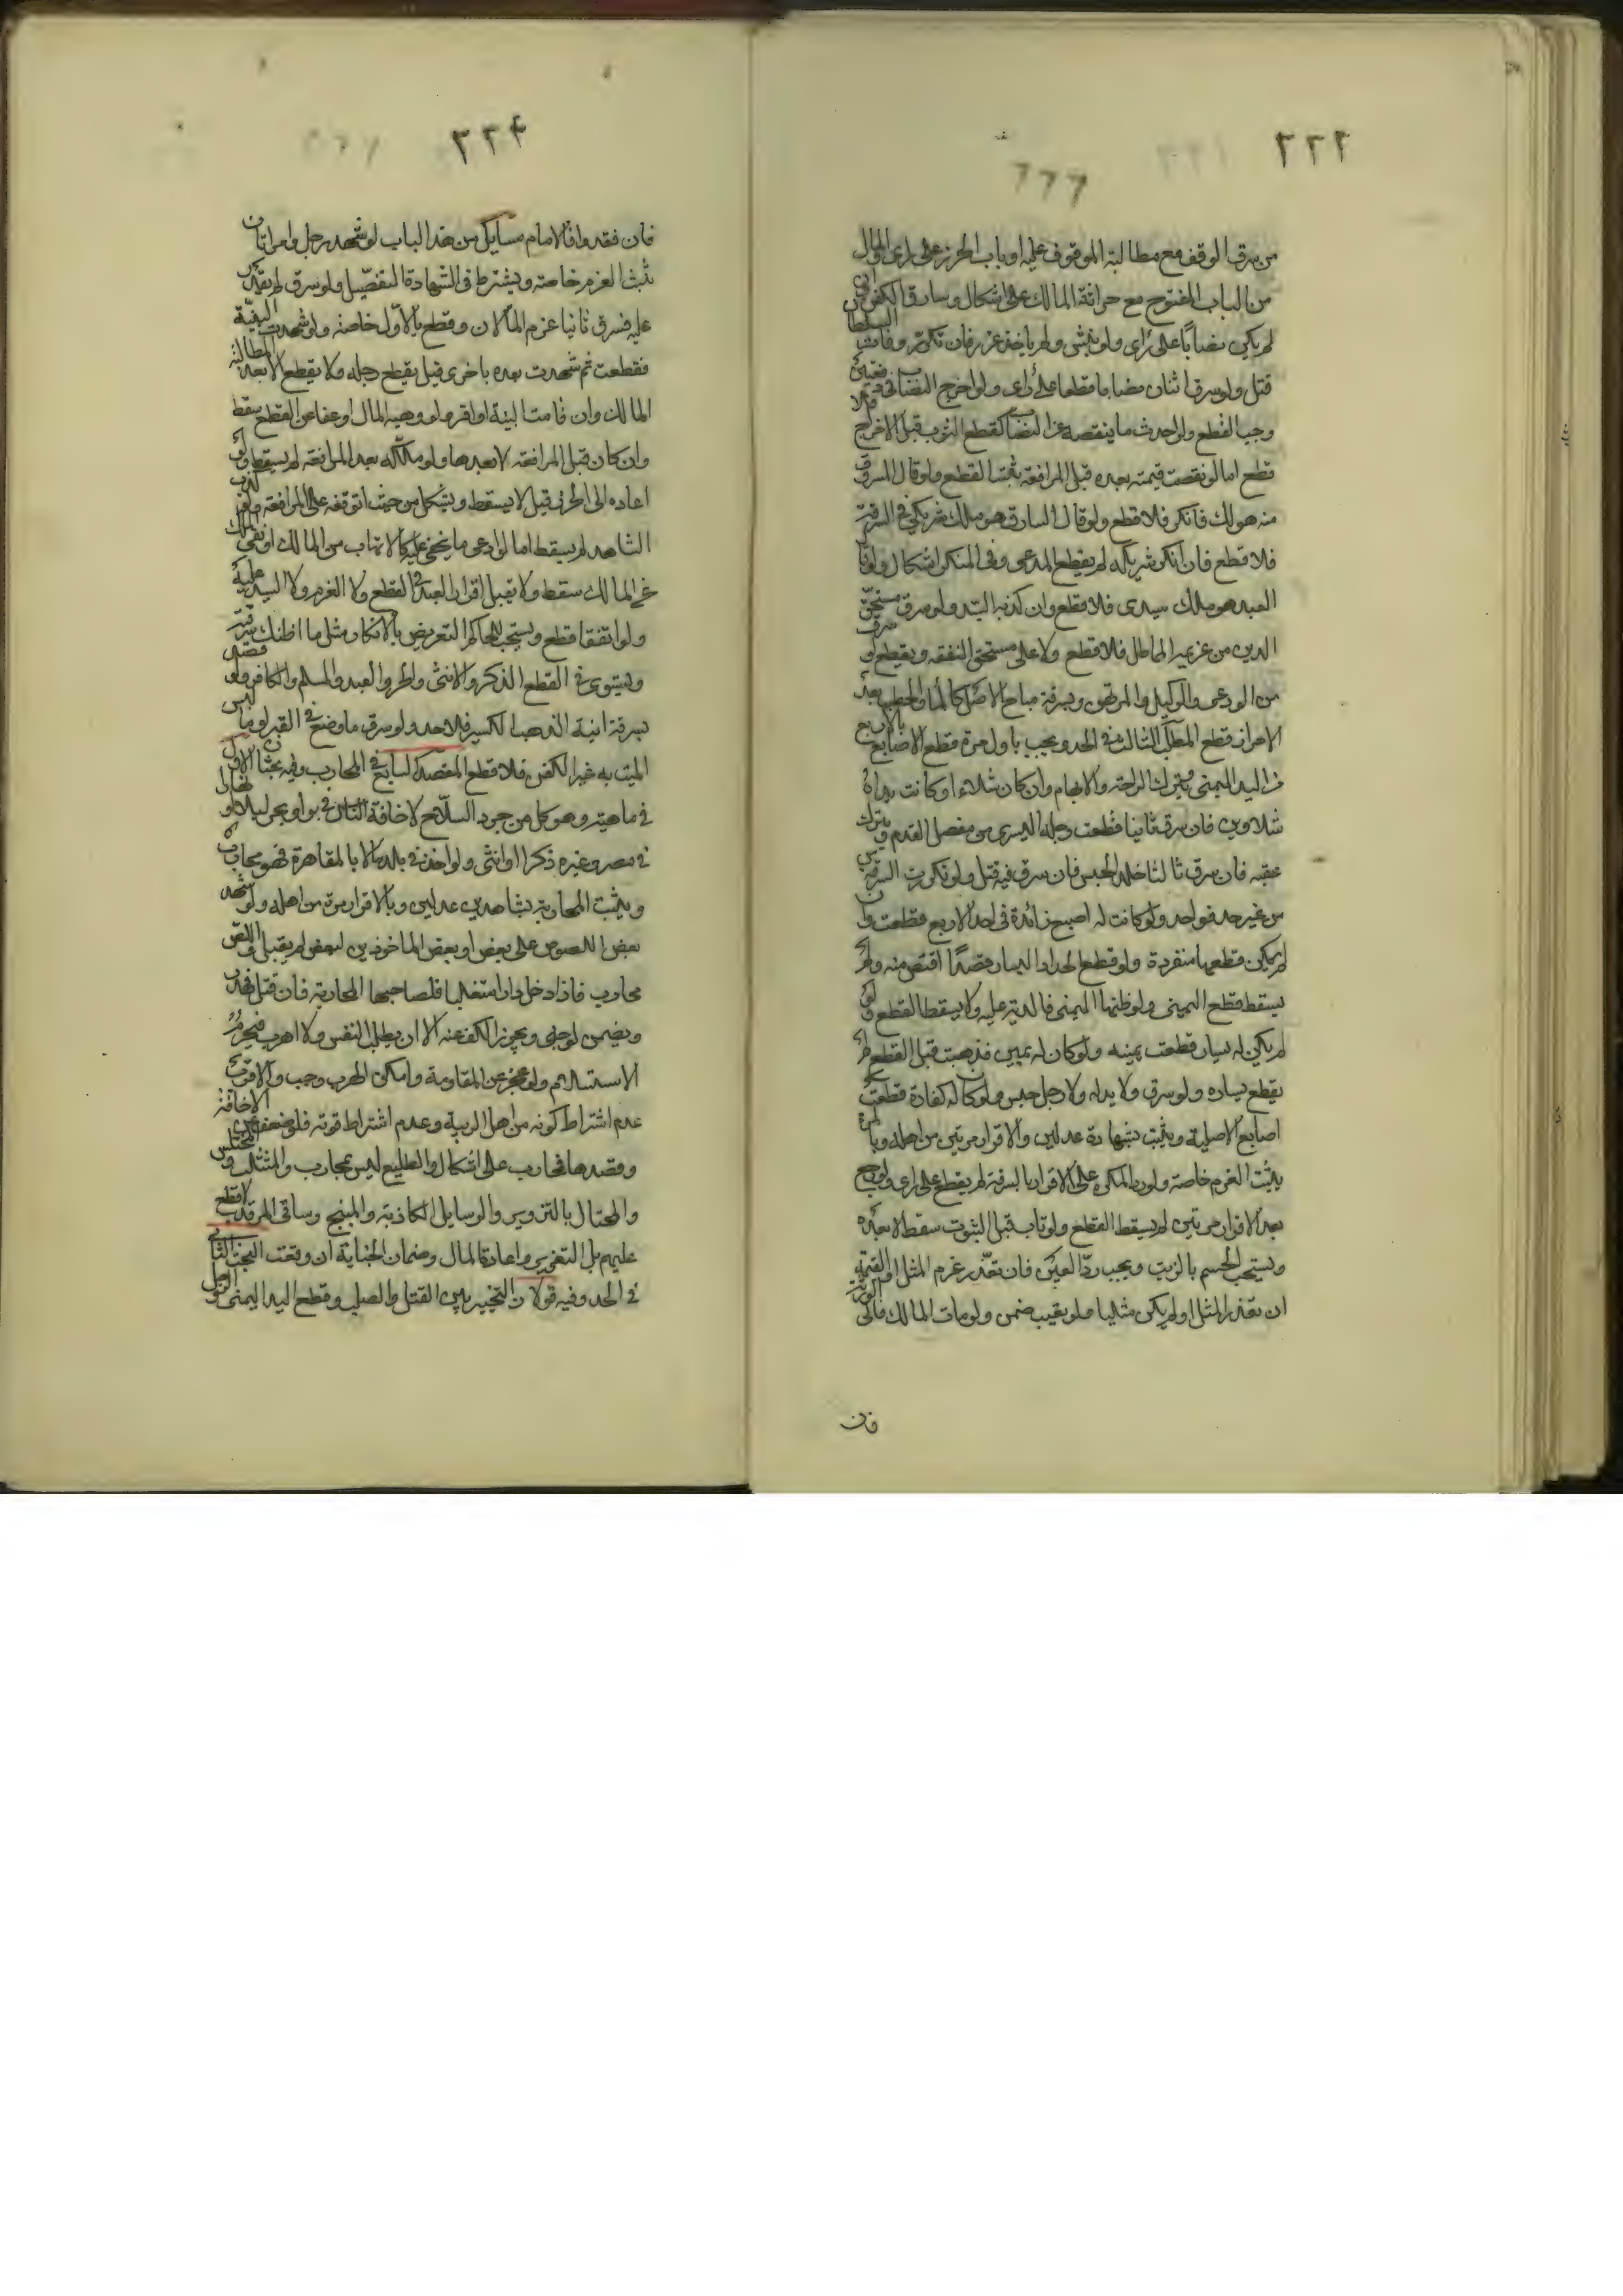 ٢٢٢
من سرق الوقف مع مطالبة الموقوف عليه او باب الحرز على راى او المال
من الباب المفتوح مع حراثة المالك على اشكال وسارق الكفن وان
لم يكن نصابا على راى ولو نبش ولم ياخذ عزر فان تكرر وفات السلطان
قتل ولو سرق اثنان نصابا قطعا على راى ولو اخرج النصاب فى دفعتين
وجب القطع ولو احدث ما ينقصه عن النصاب كقطع الثوب قبل الاخراج فلا
قطع اما لو نقصت قيمته بعده قبل المرافعة ثبت القطع ولو قال المسروق
منه هو لك فانكر فلا قطع ولو قال السارق هو ملك شريكى فى السرقة
فلا قطع فان انكر شريكه لم يقطع المدعى وفى المنكر اشكال ولو قال
العبد هو ملك سيدى فلا قطع وان كذبه السيد ولو سرق مستحق
الدين من غريمه المماطل فلا قطع ولا على مستحق النفقة ويقطع لو سرق
من الودعى والوكيل والمرتهن وبسرقة مباح الاصل كالماء والحطب بعد
الاحراز قطع المطلب الثالث فى الحد ويجب باول مرة قطع الاصابع الاربع
من اليد اليمنى ويترك الراحة والابهام وان كان شلاء او كانت يداه
شلاوين فان سرق ثانيا قطعت رجله اليسرى من مفصل القدم ويترك
عقبه فان سرق ثالثا خلد الحبس فان سرق فيه قتل ولو تكررت السرقة
من غير حد فواحد ولو كانت له اصبع زائدة فى احد الاربع قطعت وان
لم يمكن قطعها منفردة ولو قطع الحداد اليسار قصدا اقتص منه ولم
يسقط قطع اليمنى ولو ظنها اليمنى فالدية عليه ولا يسقط القطع ولو
لم يكن له يسار قطعت يمينه ولو كان له يمين فذهبت قبل القطع لم
يقطع يساره ولو سرق ولا يد له ولا رجل حبس ولو كان له كف زائدة قطعت
اصابع الاصلية ويثبت بشهادة عدلين والاقرار مرتين من اهله وبالمرة
يثبت الغرم خاصة ولو رد المكره على الاقرار بالسرقة لم يقطع على راى ولو رجع
بعد الاقرار مرتين لم يسقط القطع ولو تاب قبل الثبوت سقط لا بعده
ويستحب الحسم بالزيت ويجب رد العين فان تعذر غرم المثل او القيمة
ان تعذر المثل او لم يكن مثليا ولو تعيب ضمن ولو مات المالك فالى الورثة
فان
٢٢٤
فان فقدوا فالامام مسايل من هذا الباب لو شهد رجل وامراتان
ثبت الغرم خاصة ويشترط فى الشهادة التفصيل ولو سرق لم يقدر
عليه فسرق ثانيا غرم المالان وقطع بالاول خاصة ولو شهدت البينة
فقطعت ثم شهدت بعده باخرى قيل يقطع رجله ولا يقطع الا بعد مطالبة
المالك وان قامت البينة او اقر ولو وهبه المال او عفا عن القطع سقط
وان كان قبل المرافعة لا بعدها ولو ملكه بعد المرافعة لم يسقط ولو
اعاده الى الحرز قيل لا يسقط ويشكل من حيث توقفه على المرافعة ولو كذب
الشاهد لم يسقط اما لو ادعى ما يخفى عليه كالاتهاب من المالك او نفى الملك
عن المالك سقط ولا تقبل اقرار العبد فى القطع ولا الغرم ولا السيد عليه
ولو اتفقا قطع ويستحب للحاكم التعريض بالانكار مثل ما اظنك سرقت
ويستوى فى القطع الذكر والانثى والحر والعبد والمسلم والكافر ولو قصد
بسرقة انية الذهب الكسر فلا حد ولو سرق ما وضع فى القبر او ما لبس
الميت به غير الكفن فلا قطع المقصد السابع فى المحارب وفيه بحثان الاول
فى ماهيته وهو كل من جرد السلاح لاخافة الناس فى بر او بحر ليلا او نهارا
فى مصر وغيره ذكرا او انثى ولو اخذ فى بلد مالا بالمقاهرة فهو محارب
ويثبت المحاربة بشاهدين عدلين وبالاقرار مرة من اهله ولو شهد
بعض اللصوص على بعض او بعض الماخوذين لبعض لم يقبل واللص
محارب فاذا دخل دارا متغلبا فلصاحبها المحاربة فان قتل فهدر
ويضمن لو جنى ويجوز الكف عنه الا ان يطلب النفس ولا اهرب فيحرم
الاستسلام ولو عجز عن المقاومة وامكن الهرب وجب والاقرب
عدم اشتراط كونه من اهل الريبة وعدم اشتراط قوته فلو ضعف عن الاخافة
وقصدها فمحارب على اشكال والطليع ليس بمحارب والمستلب والمختلس
والمحتال بالتزوير والرسايل الكاذبة والمبنج وساقى المرقد لا قطع
عليهم بل التعزير واعادة المال وضمان الجناية ان وقعت البحث الثانى
فى الحد وفيه قولان التخيير بين القتل والصلب وقطع اليد اليمنى والرجل